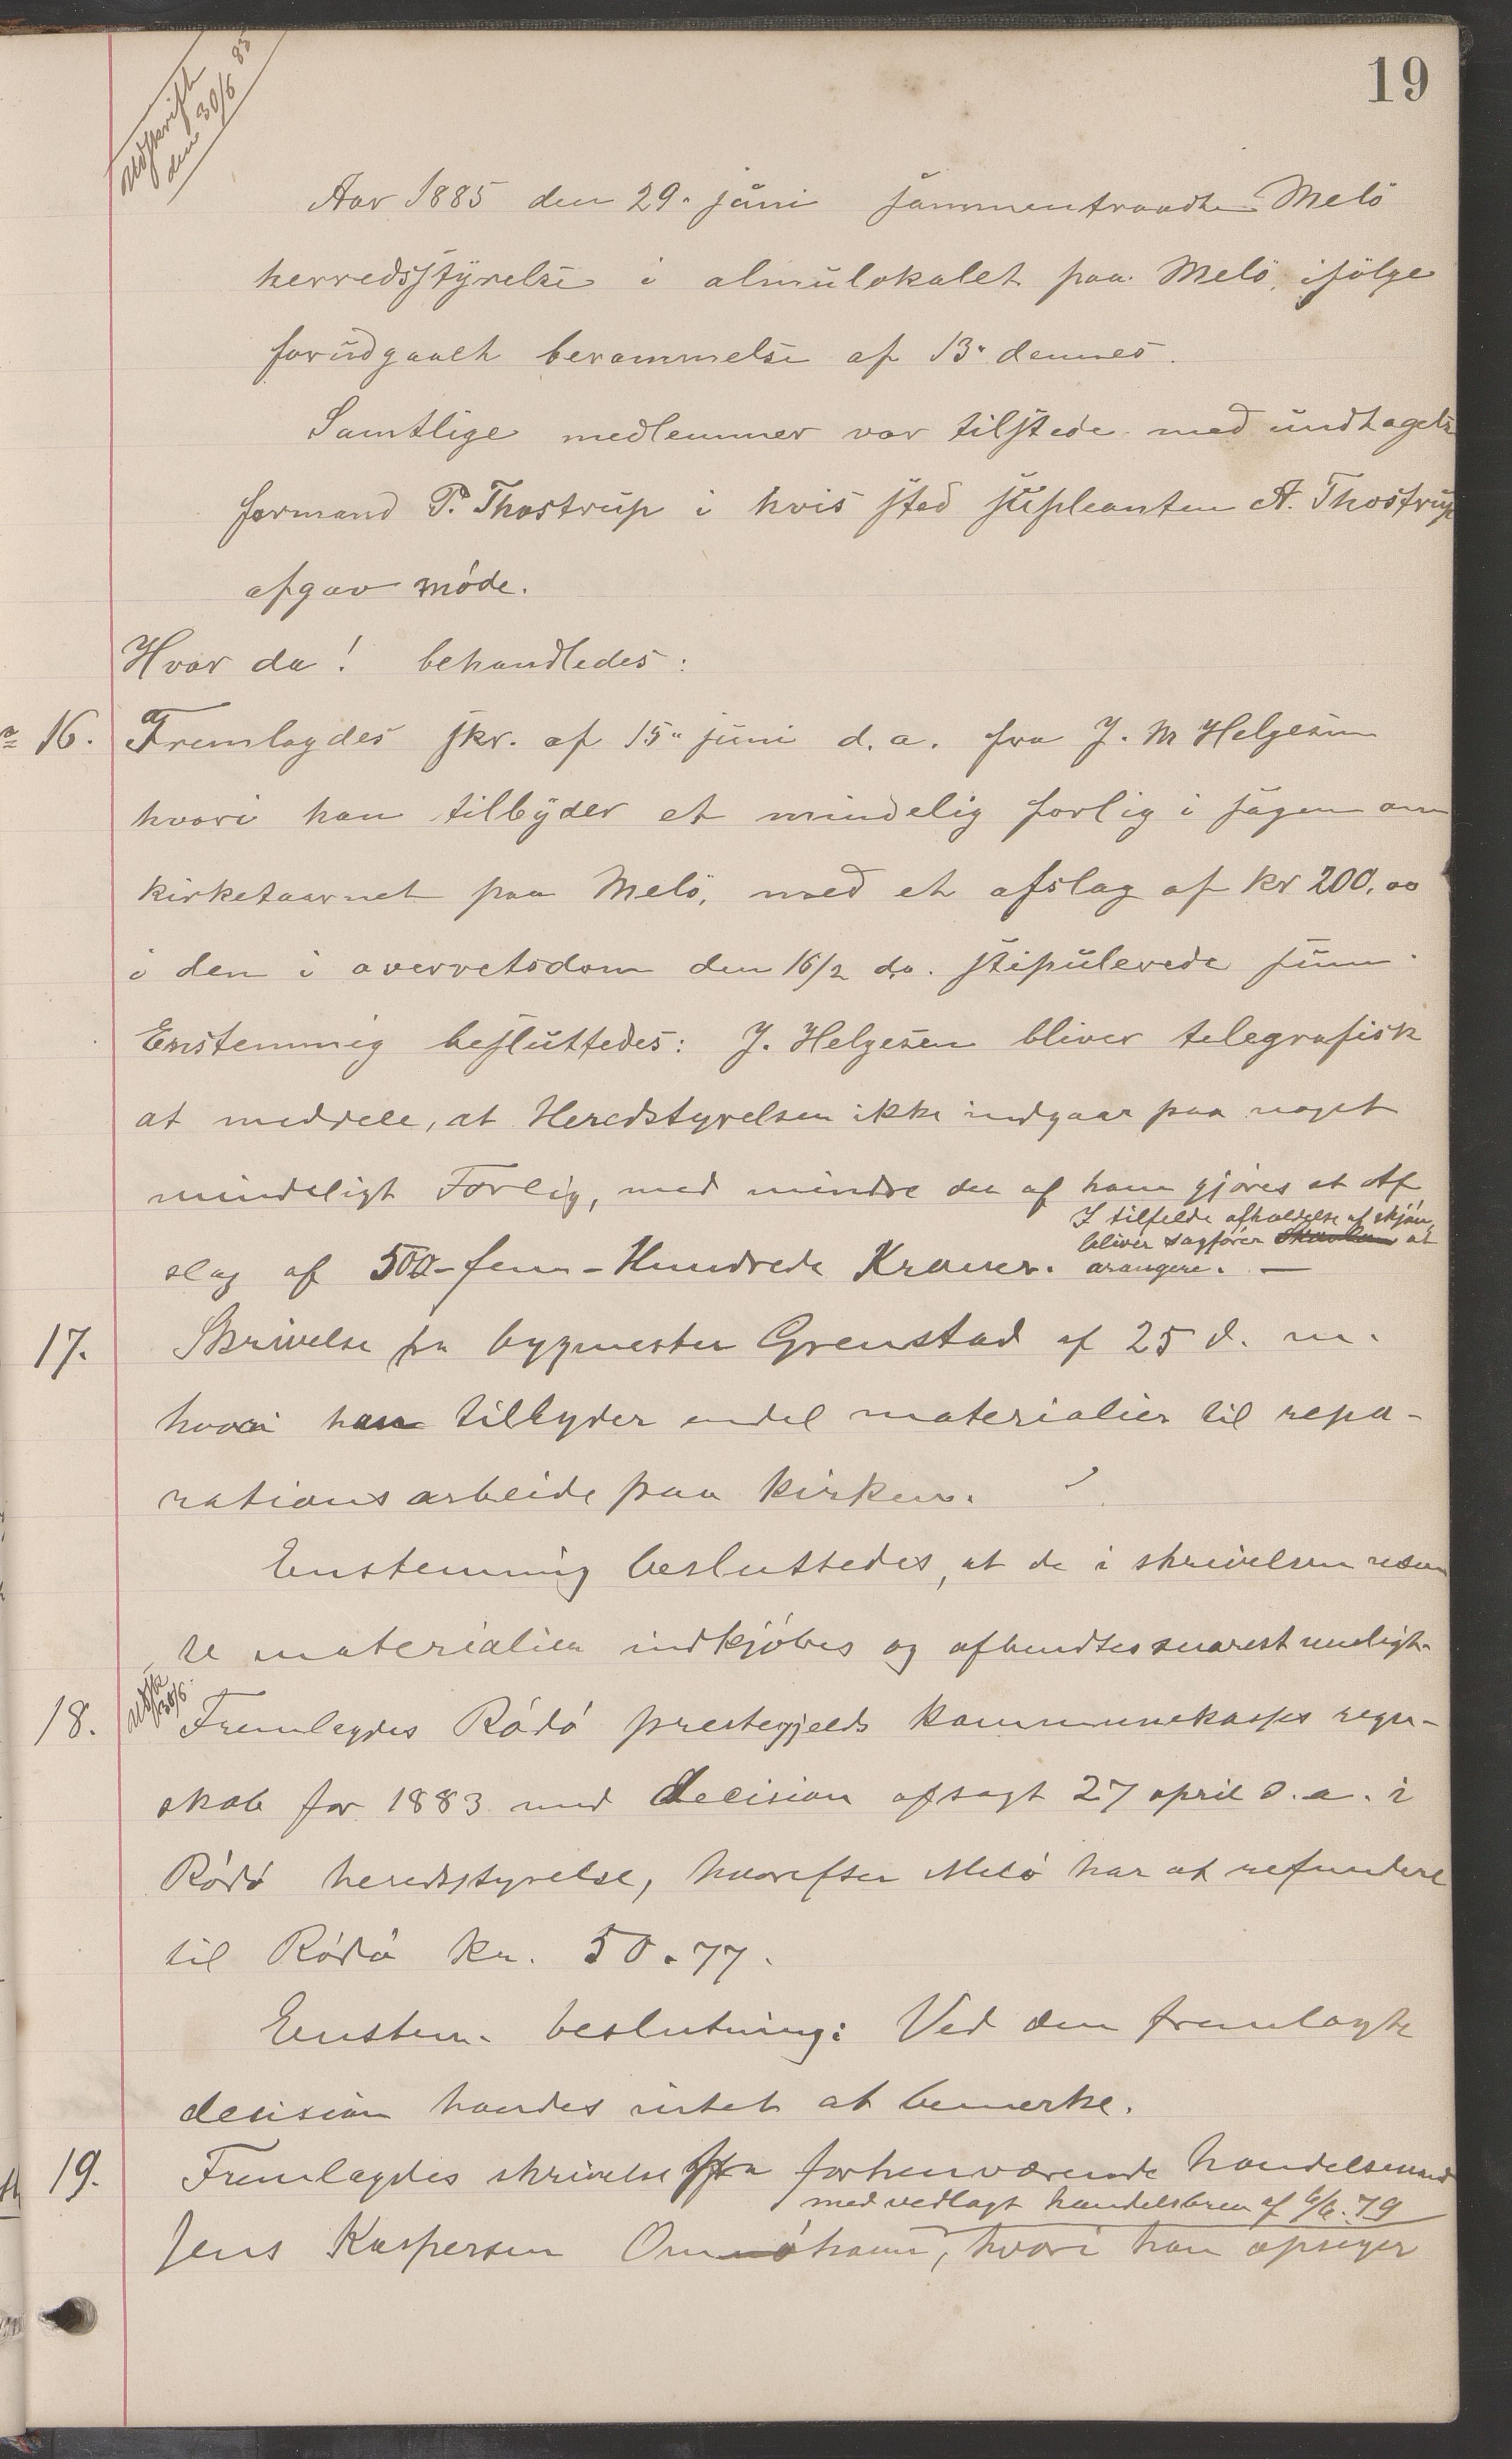 19
Udskrift
den 30/6 85
Aar 1885 den 29. juni sammentraadte Melö
herredsstyrelse i almulokalet paa Melö, ifölge
forudgaaet berammelse af 13. dennes.
Samtlige medlemmer var tilstede med undtagelse
formand P. Thostrup i hvis sted supleanten A. Thostrup
afgav möde.
Hvor da! behandledes:
16. Fremlagdes skr. af 15. juni d. a. fra J. M Helgesen
hvori han tilbyder et mindelig forlig i sagen om
kirketaarnet paa Melö, med et afslag af kr 200,00
i den i overretsdom den 16/2 d.a. stipulerede sum.
Enstemmig besluttedes: J. Helgesen bliver telegrafisk
at meddele, at Heredstyrelsen ikke indgaar paa noget
mindeligt Forlig, med mindre der af ham gjöres et Af
slag af 500 - fem - Hundrede Kroner. I tilfelde afholdelse af skjön,
bliver sagförer at
arangere. —
17. Skrivelse fra bygmester Grenstad af 25 d. m.
hvori han tilbyder endel materialier til repa-
rationsarbeide paa kirken.
Enstemmig besluttedes, at de i skrivelsen nævn
te materialier indkjöbes og afhendtes snarest muligt.
Udskr
30/6.
18. Fremlagdes Rödö prestegjelds kommunekasses regn-
skab for 1883 med decision afsagt 27 april d. a. i
Rödö heredsstyrelse, hvorefter Melö har at refundere
til Rödö kr. 50.77.
Enstem. beslutning: Ved den fremlagte
decision havdes intet at bemerke.
19. Fremlagdes skrivelse fra forhenværende handelsmand
med vedlagt handelsbrev af 6/6. 79
Jens Kaspersen Omnöhavn, hvori han opsiger